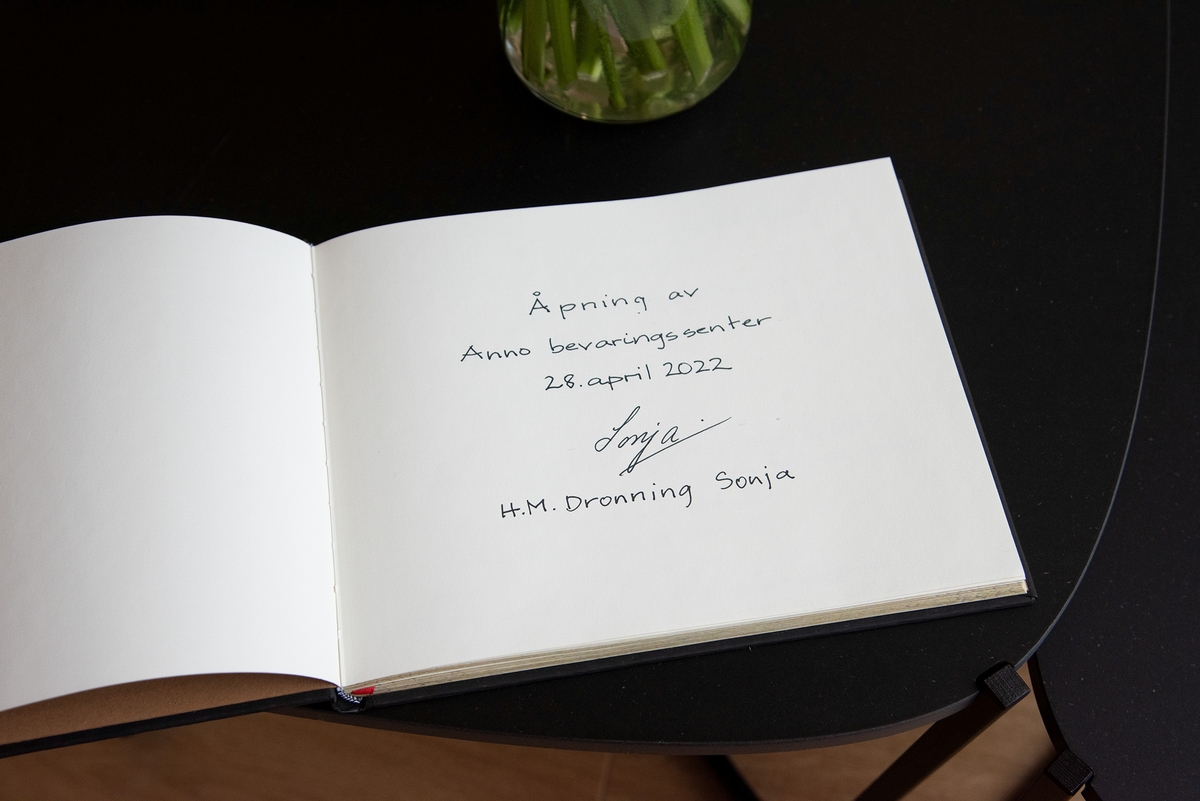 Åpning av
Anno bevaringssenter
28. april 2022
Sonja
H.M. Dronning Sonja